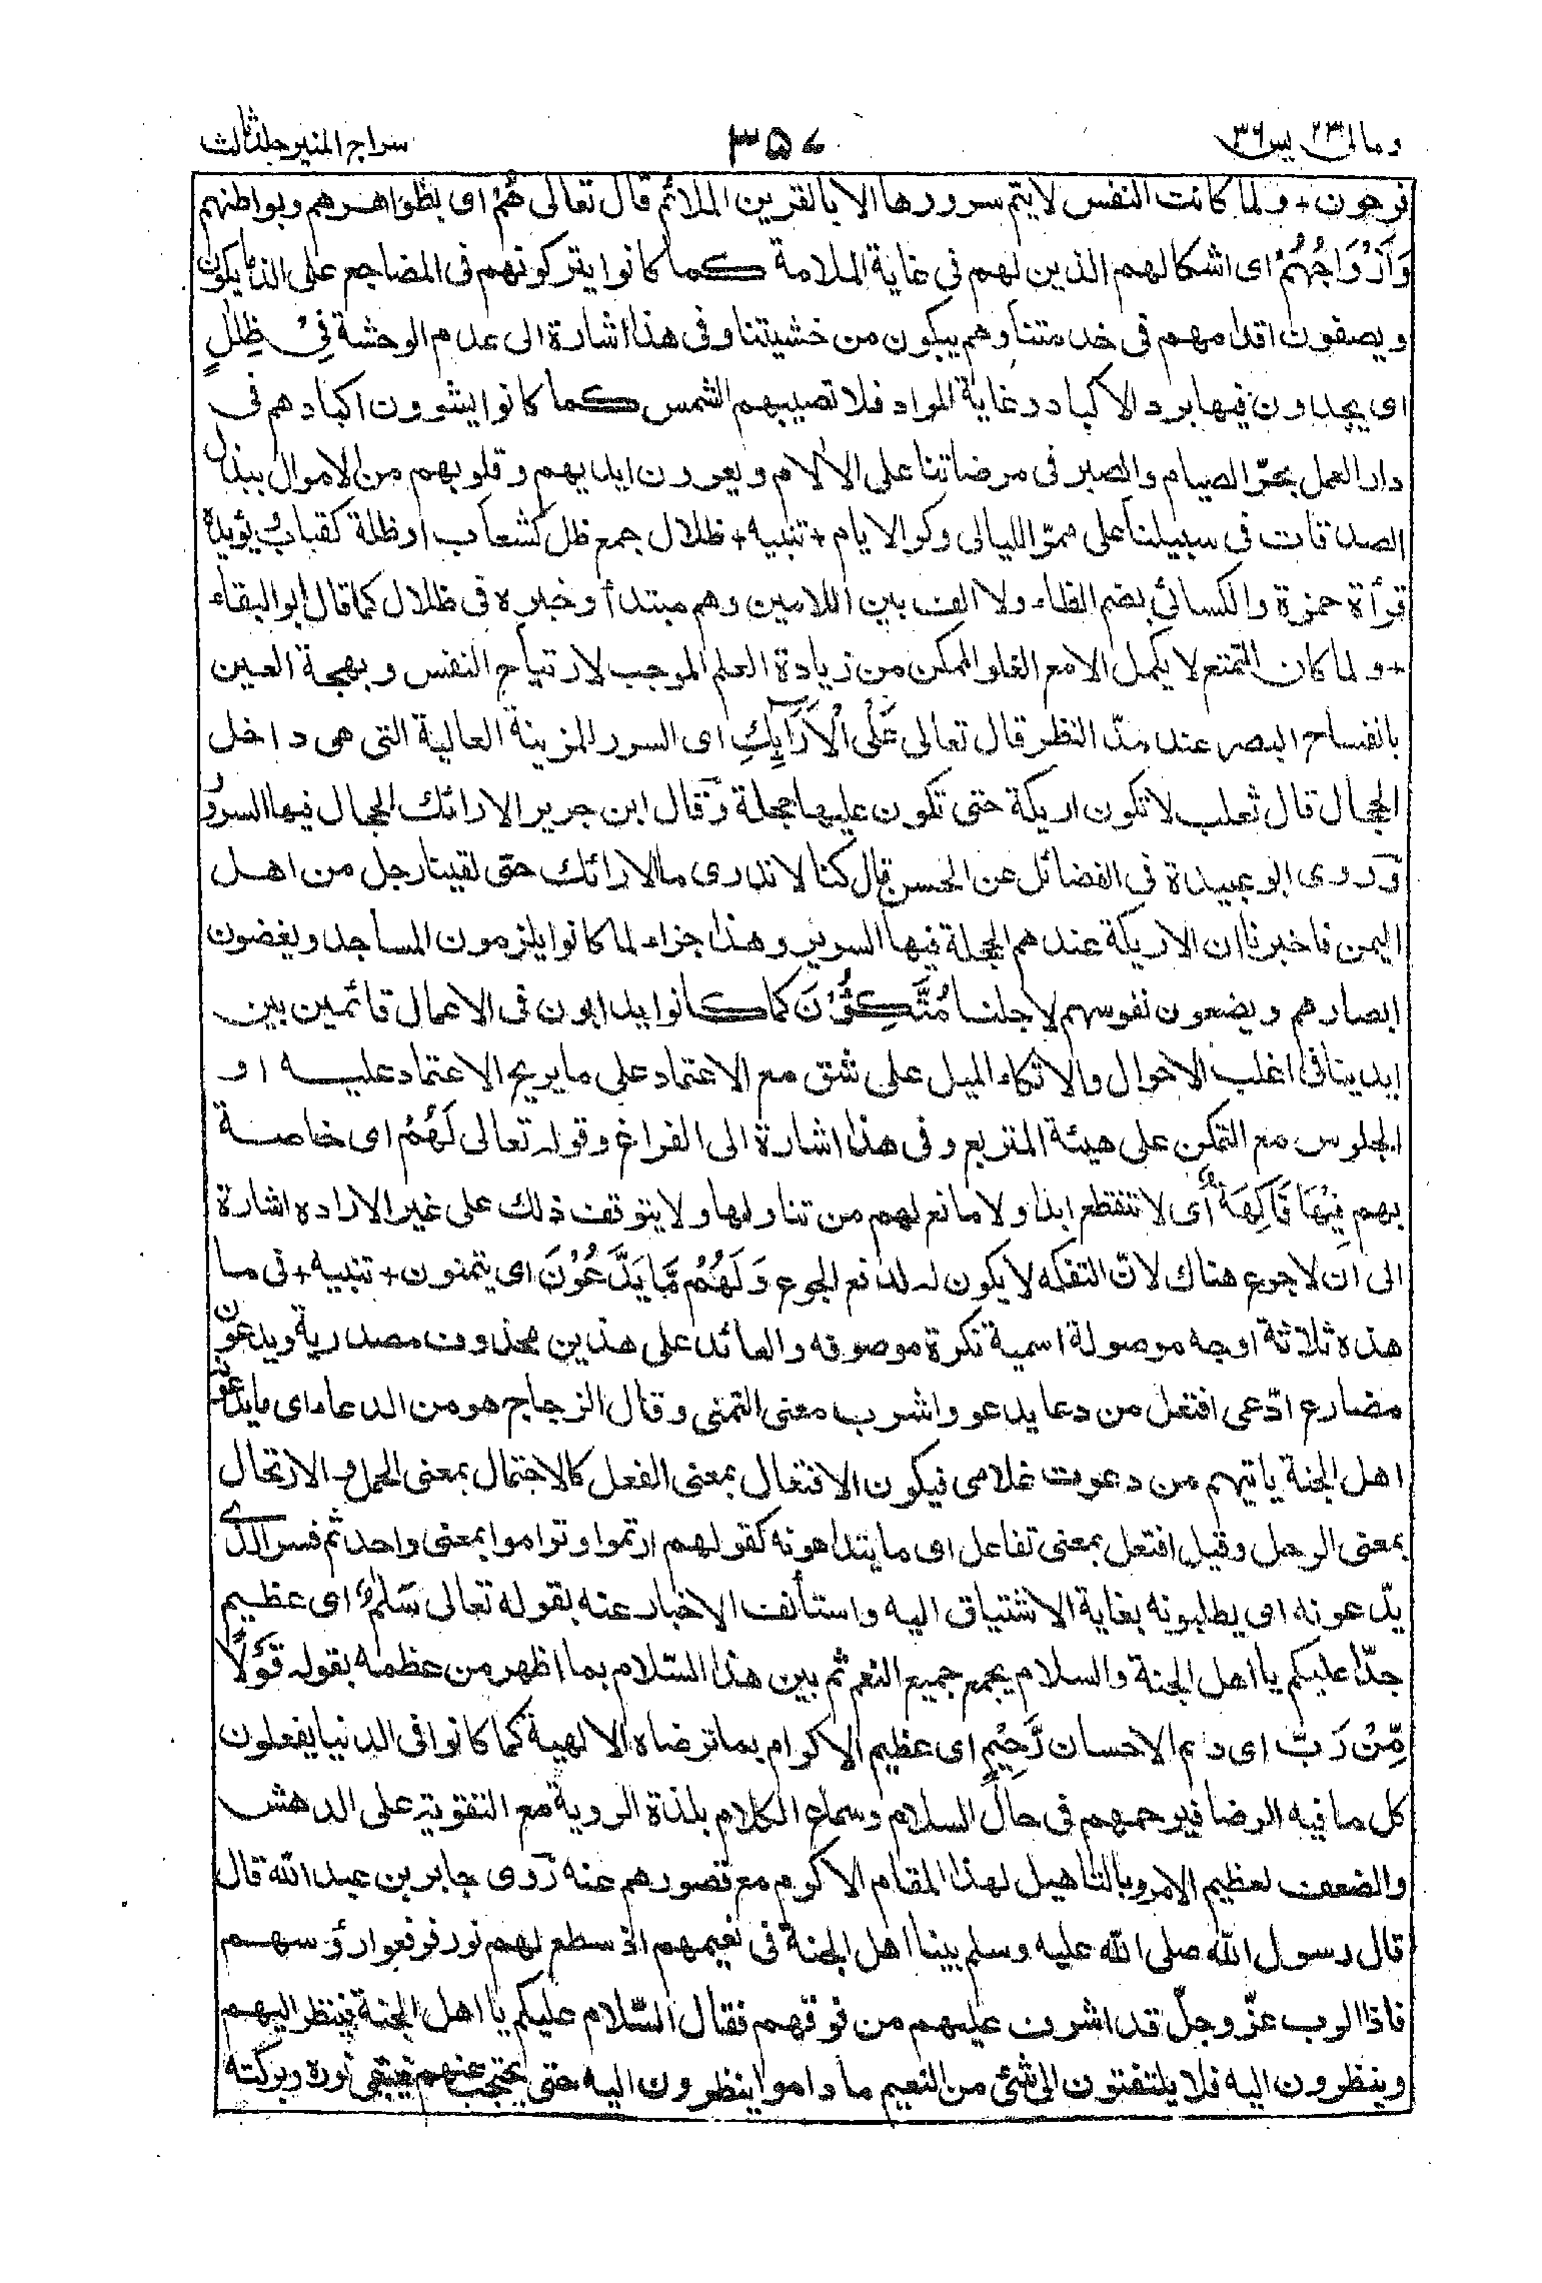 ومالى ٢٣ يس ٣٦
٣٥٧
سراج المنير جلد ثالث
فرحون + ولما كانت النفس لا يتم سرورها الا بالقرين الملائم قال تعالى هُمْ اى بظواهرهم وبواطنهم
وَاَزْوَاجُهُمْ اى اشكالهم الذين لهم فى غاية الملامة كما كانوا يتركونهم فى المضاجع على الذ ما يكون
ويصفون اقدامهم فى خدمتنا وهم يبكون من خشيتنا وفى هذا اشارة الى عدم الوحشة فِيْ ظِلٰلٍ
اى يجدون فيها برد الاكباد وغاية المراد فلا تصيبهم الشمس كما كانوا يشوون اكبادهم فى
دار العمل بحرّ الصيام والصبر فى مرضاتنا على الآلام ويعرون ايديهم وقلوبهم من الاموال ببذل
الصدقات فى سبيلنا على ممرّ الليالى وكر الايام + تنبيه + ظلال جمع ظل كشعاب او ظلة كقباب يؤيده
قرأة حمزة والكسائى بضم الظاء ولا الف بين اللامين وهم مبتدأ وخبره فى ظلال كما قال ابو البقاء
+ ولما كان التمتع لا يكمل الا مع العلو الممكن من زيادة العلم الموجب لارتياح النفس وبهجة العين
بانفساح البصر عند مدّ النظر قال تعالى عَلَى الْاَرَآئِكِ اى السرر المزينة العالية التى هى داخل
الحجال قال ثعلب لا تكون اريكة حتى تكون عليها حجلة وقال ابن جرير الارائك الحجال فيها السرر
وروى ابو عبيدة فى الفضائل عن الحسن قال كنا لا ندرى ما الارائك حتى لقينا رجل من اهل
اليمن فاخبرنا ان الاريكة عندهم الحجلة فيها السرير وهذا جزاء لما كانوا يلزمون المساجد ويغضون
ابصارهم ويضعون نفوسهم لاجلنا مُتَّكِئُوْنَ كما كانوا يدابون فى الاعمال قائمين بين
ايدينا فى اغلب الاحوال والاتكاء الميل على شق مع الاعتماد على ما يريح الاعتماد عليه او
الجلوس مع التمكن على هيئة المتربع وفى هذا اشارة الى الفراغ وقوله تعالى لَهُمْ اى خاصة
بهم فِيْهَا فَاكِهَةٌ اى لا تنقطع ابدا ولا مانع لهم من تناولها ولا يتوقف ذلك على غير الارادة اشارة
الى ان لا جوع هناك لانّ التفكه لا يكون له لدفع الجوع وَلَهُمْ مَّا يَدَّعُوْنَ اى يتمنون + تنبيه + فى ما
هذه ثلاثة اوجه موصولة اسمية نكرة موصوفه والعائد على هذين محذوف مصدرية ويدعون
مضارع ادّعى افتعل من دعا يدعو واشرب معنى التمنى وقال الزجاج هو من الدعاء اى ما يدعونه
اهل الجنة ياتيهم من دعوت غلامى فيكون الافتعال بمعنى الفعل كالاحتمال بمعنى الحمل والارتحال
بمعنى الرحل وقيل افتعل بمعنى تفاعل اى ما يتداعونه كقولهم ارتموا وتراموا بمعنى واحد ثم فسر الذى
يدّعونه اى يطلبونه بغاية الاشتياق اليه واستأنف الاخبار عنه بقوله تعالى سَلٰمٌ اى عظيم
جدّا عليكم يا اهل الجنة والسلام يجمع جميع النعم ثم بين هذا السّلام بما اظهر من عظمه بقوله قَوْلًا
مِّنْ رَّبٍّ اى دائم الاحسان رَّحِيْمٍ اى عظيم الاكرام بما ترضاه الالهية كما كانوا فى الدنيا يفعلون
كل ما فيه الرضا فيرحمهم فى حال السلام وسماع الكلام بلذة الروية مع التقوية على الدهش
والضعف لعظيم الامر وبالتاهيل لهذا المقام الاكرم مع قصورهم عنه روى جابر بن عبد الله قال
قال رسول الله صلى الله عليه وسلم بينا اهل الجنة فى نعيمهم اذ سطع لهم نور فرفعوا رؤسهم
فاذا الرب عزّ وجلّ قد اشرف عليهم من فوقهم فقال السّلام عليكم يا اهل الجنة فينظر اليهم
وينظرون اليه فلا يلتفتون الى شئ من النعيم ما داموا ينظرون اليه حتى يحتجب عنهم فيبقى نوره وبركته